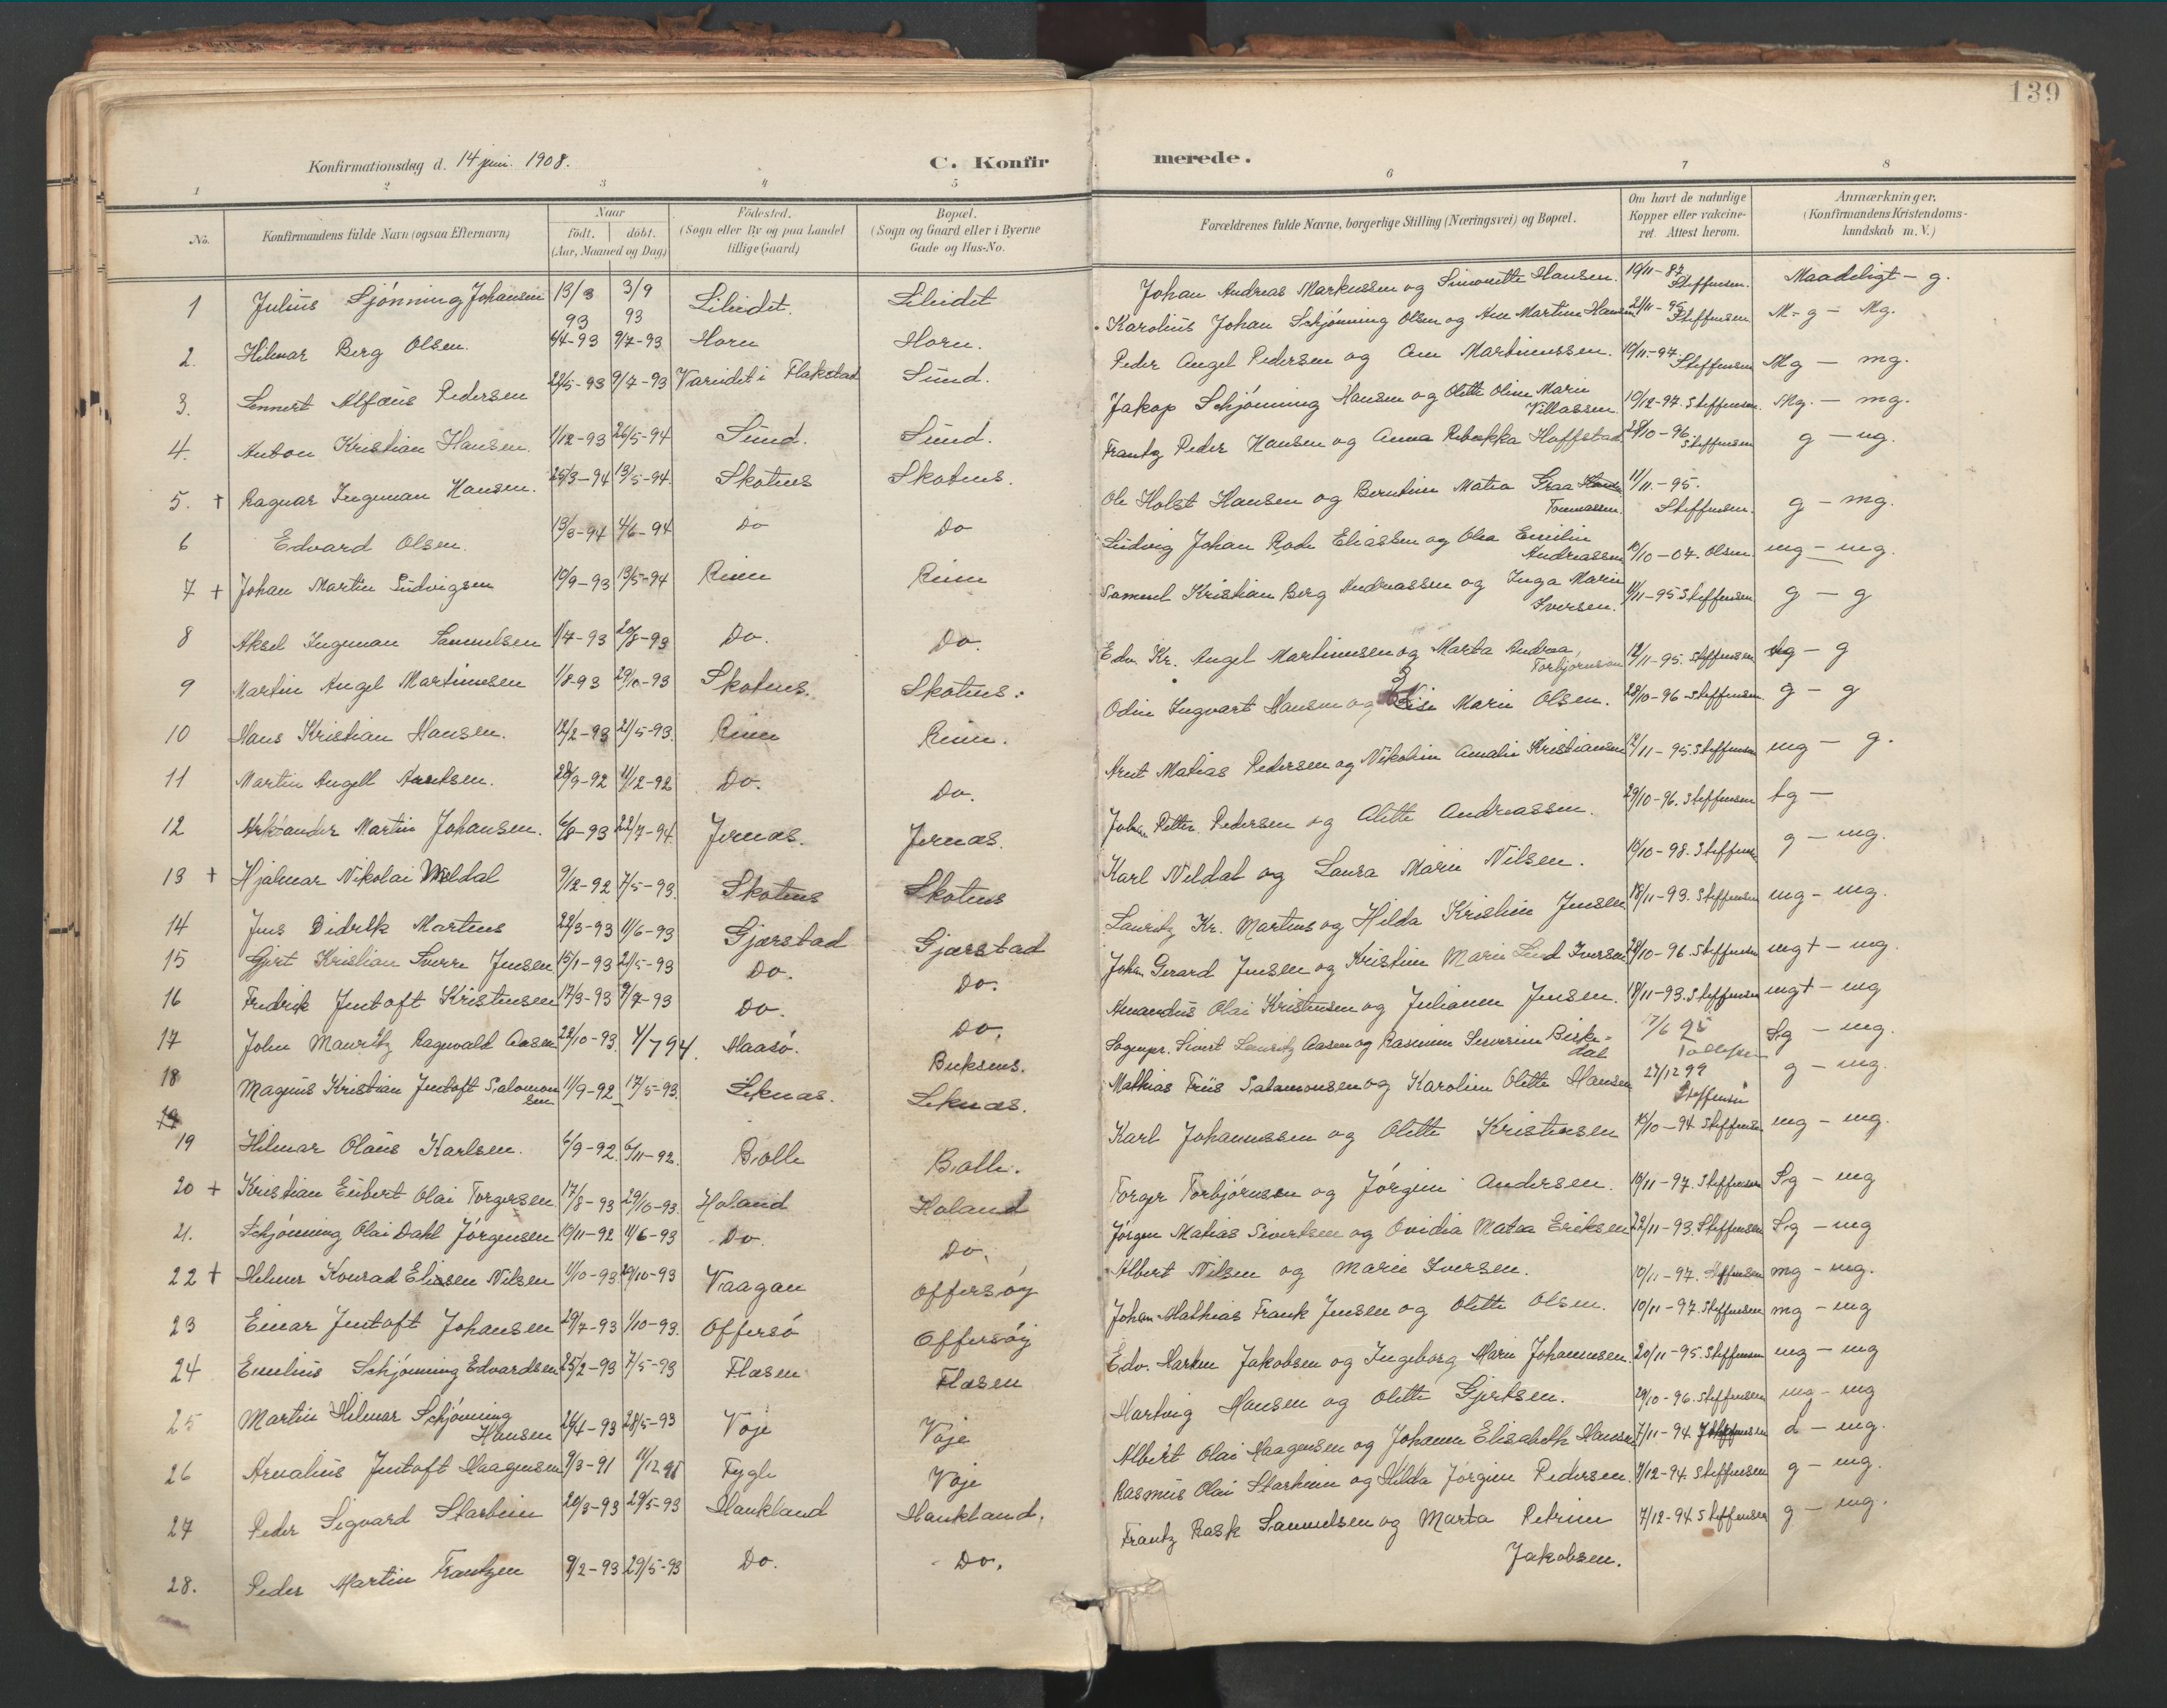 139
Konfirmationsdag d. 14 juni. 1908.
C. Konfirmerede.
1 2 3 4 5 6 7 8
No.
Konfirmandens fulde Navn (ogsaa Efternavn)
Naar
födt. döbt.
(Aar, Maaned og Dag)
Födested.
(Sogn eller By og paa Landet
tillige Gaard)
Bopæl.
(Sogn og Gaard eller i Byerne
Gade og Hus-No.
Forældrenes fulde Navne, borgerlige Stilling (Næringsvei) og Bopæl.
Om havt de naturlige
Kopper eller vakcine-
ret. Attest herom.
Anmærkninger,
(Konfirmandens Kristendoms-
kundskab m. V.)
1 Julius Sjønning Johansen 13/3 93 3/9 93 Lileidet. Lileidet Johan Andreas Markussen og Simonette Hansen. 19/11-87 Steffensen. Maadeligt - g.
2. Hilmar Berg Olsen. 4/4-93 9/7-93 Horn Horn. Karolius Johan Schjønning Olsen og Ane Martine Hansen 21/11-95 Steffensen M-g - Mg.
3. Lennert Alfæus Pedersen 22/5-93 9/7-93 Vareidet i Flakstad Sund. Peder Angel Pedersen og Ane Martinussen. 10/11-97 Steffensen Mg - mg.
4. Anton Kristian Hansen. 1/12-93 26/5-94 Sund. Sund. Jakop Schjønning Hansen og Olette Oline Marie Villassen. 10/12-97. Steffensen. Mg. - mg.
5. + Ragnar Ingeman Hansen. 25/3-94 13/5-94 Skotnes Skotnes. Frantz Peder Hansen og Anna Rebekka Hoffstad 28/10-96. Steffensen g - mg.
6 Edvard Olsen. 13/3-94 4/6-94 Do Do Ole Holst Hansen og Berntine Matea Graa Tommassen. 11/11.-95. Steffensen. g - mg.
7 + Johan Martin Ludvigsen 10/9-93 13/5-94 Reine Reine Ludvig Johan Rode Eliassen og Olea Emilie Andreassen 10/10-07. Olsen mg - mg.
8 Aksel Ingeman Samuelsen 1/7-93 20/8-93 Do. Do. Samuel Kristian Berg Andreassen og Inga Marie Iversen. 11/11-95 Steffensen g - g
9 Martin Angel Martinusen 1/8-93 29/10-93 Skotnes. Skotnes. Edv. Kr. Angel Martinussen og Marta Andrea, Torbjørnsen 12/11-95. Steffensen g - g
10 Hans Kristian Hansen. 12/2-93 21/5-93. Reine Reine. Odin Ingvart Hansen og Lise Marie Olsen. 28/10-96 Steffensen. g - g
11 Martin Angell Arntsen. 28/9-92 11/12-92 Do. Do. Arnt Matias Pedersen og Nikoline Amalie Kristiansen 12/11-95. Steffensen mg - g.
12 Martin Johansen. 6/8-93 22/7-94. Jernæs. Jernæs. Johan Petter Pedersen og Olette Andreassen. 29/10-96. Steffensen tg -
13 + Hjalmar Nikolai Meldal 9/12-92 7/5-93. Skotnes Skotnes Karl Neldal og Laura Marie Nilsen. 10/10-98. Steffensen g - mg.
14 Jens Didrik Martens 22/3-93 11/6-93 Gjærstad Gjærstad Lauritz Kr. Martens og Hilda Kristine Jensen 18/11-93. Steffensen mg - mg.
15 Gjert Kristian Sverre Jensen 15/1-93 21/5-93 Do. Do. Johan Gerard Jensen og Kristine Marie Lund Iversen 28/10-96 Steffensen mg+ - mg.
16 Fredrik Jentoft Kristensen 17/3-93 9/7-93 Do. Do. Amandus Olai Kristensen og Julianne Jensen. 18/11-93. Steffensen mg+ - mg
17 John Mauritz Ragnvald Aasen 22/10-93. 4/7 94. Maasö. Buksnes. Sognepr. Sivert Lauritz Aasen og Rasmine Severine Birkedal 17/6 95 Tollefsen Sg - mg.
18 Magnus Kristian Jentoft Salomonsen 11/9-92 17/5-93. Leknæs. Leknæs. Mathias Friis Salamonsen og Karoline Olette Hansen 27/12 99 Steffensen g - mg.
19 Hilmar Olaus Karlsen. 6/9-92. 6/11-92. Bolle Bolle. Karl Johannessen og Olette Kristensen 15/10-94 Steffensen mg - mg.
20 + Kristian Eilert Olai Torgersen 17/8-93 29/10-93. Holand Holand Torger Torbjörnsen og Jörgine Andersen. 10/11-97. Steffensen Sg - mg
21. Schjönning Olai Dahl Jörgensen 10/11-92 11/6-93 Do. Do. Jörgen Matias Sivertsen og Ovidia Matea Eriksen 22/11-93. Steffensen Sg - mg
22 + Helmer Konrad Eliasen Nilsen 11/10-93 29/10-93 Vaagan Offersøy Albert Nilsen og Marie Iversen. 10/11-97. Steffensen mg - mg.
23 Einar Jentoft Johansen 29/7-93 1/10-93. Offersö Offersøy Johan Mathias Frank Jensen og Olette Olsen. 10/11-97. Steffensen mg - mg
24 Emelius Schjönning Edvardsen 25/2-93 7/5-93 Flæsen Flæsen Edv. Jakobsen og Ingeborg Marie Johannesen. 20/11-95. Steffensen mg - mg
25 Martin Hilmar Schjönning Hansen 26/4-93 28/5-93 Voje Voje Hartvig Hansen og Olette Gjertsen. 29/10-96. Steffensen mg - mg
26 Arnalius Jentoft Haagensen 9/3-91 11/12 91 Fygle Voje Albert Olai Haagensen og Johanne Elisabeth Hansen 7/11-94 Steffensen d - mg.
27 Peder Sigvard Starheim 20/3-93 29/5-93 Haukland Haukland. Rasmus Olai Starheim og Hilda Jörgine Pedersen. 7/12-94. Steffensen g - mg.
28. Peder Martin Frantzen 9/2-93 29/5-93 Do. Do. Frantz Rask Samuelsen og Marta Petrine Jakobsen. 7/12-94. Steffensen g - mg.